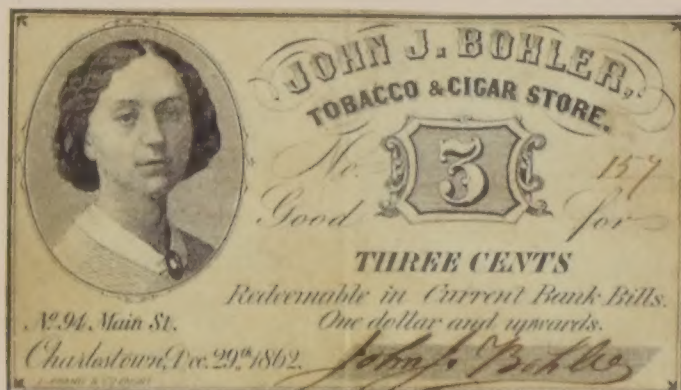 JOHN J. BOHLER,
TOBACCO & CIGAR STORE.
No. 3 157
Good for
THREE CENTS
Redeemable in Current Bank Bills.
One dollar and upwards.
No. 94 Main St.
Charlestown, Dec. 29th 1862.
John J. Bohler